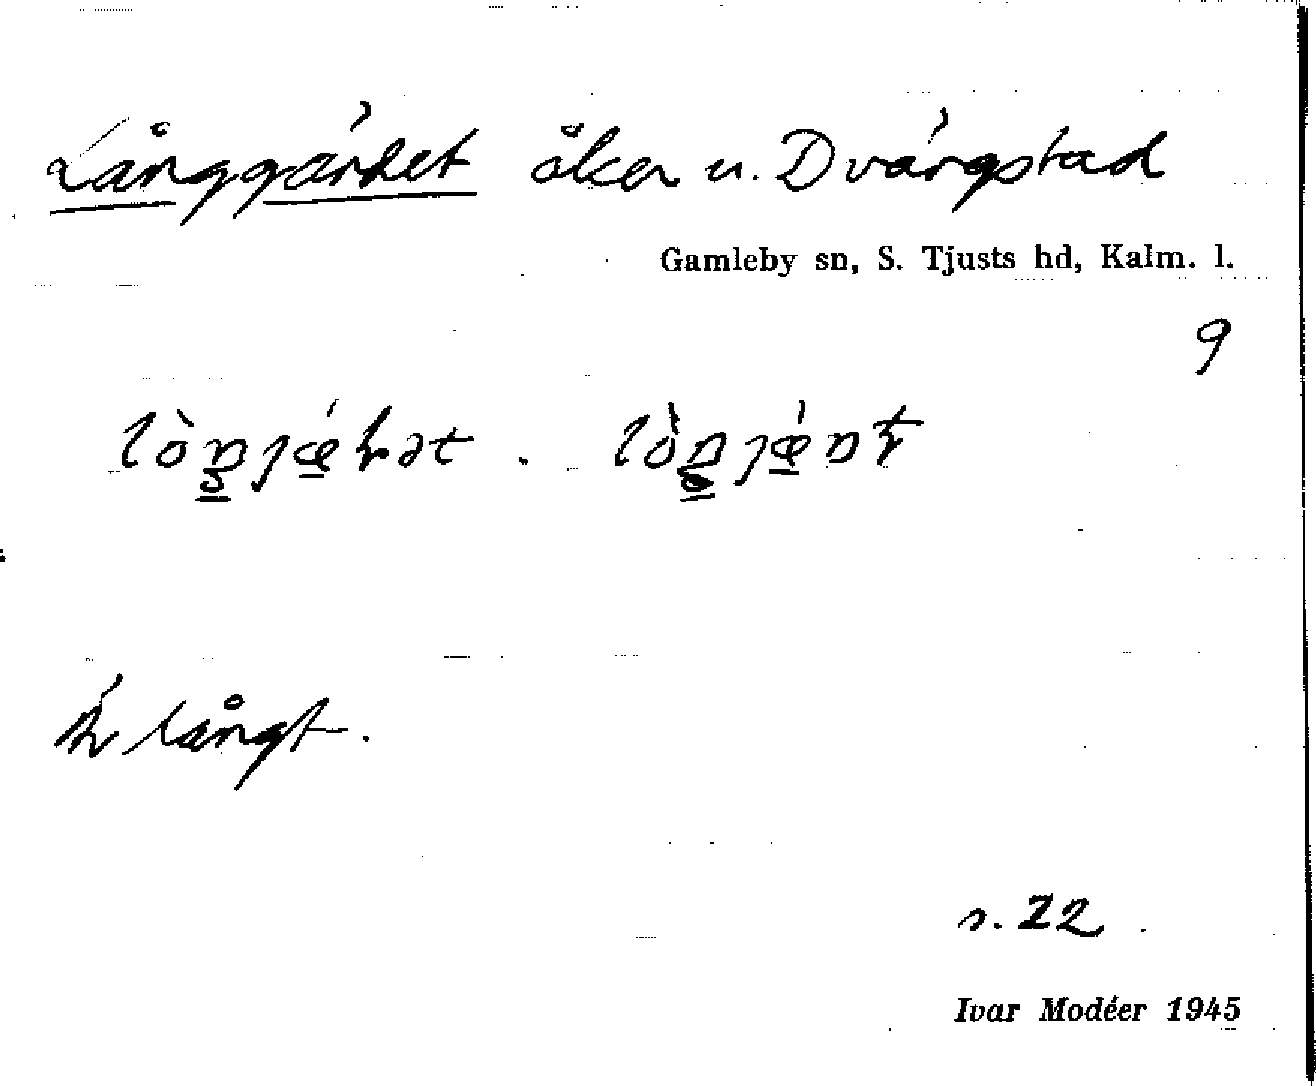 Långgärdet åker u. Dvärgstad
Gamleby sn, S. Tjusts hd, Kalm. l.
9
Är långt.
s. 22
Ivar Modéer 1945